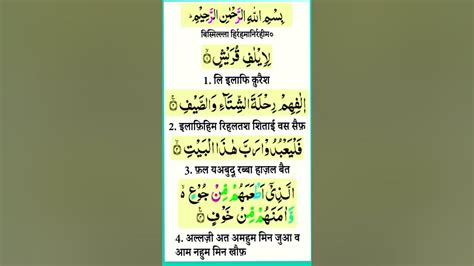 بِسْمِ اللهِ الرَّحْمٰنِ الرَّحِيْمِ
बिस्मिल्ला हिर्रहमानिर्रहीम०
لِاِيْلٰفِ قُرَيْشٍ
1. लि इलाफि क़ुरैश
اٖلٰفِهِمْ رِحْلَةَ الشِّتَآءِ وَالصَّيْفِ
2. इलाफ़िहिम रिहलतश शिताई वस सैफ़
فَلْيَعْبُدُوْا رَبَّ هٰذَا الْبَيْتِ
3. फ़ल यअबुदू रब्बा हाज़ल बैत
الَّذِيْٓ اَطْعَمَهُمْ مِّنْ جُوْعٍ ە
وَّاٰمَنَهُمْ مِّنْ خَوْفٍ
4. अल्लज़ी अत अमहुम मिन जुआ व
आम नहुम मिन ख़ौफ़